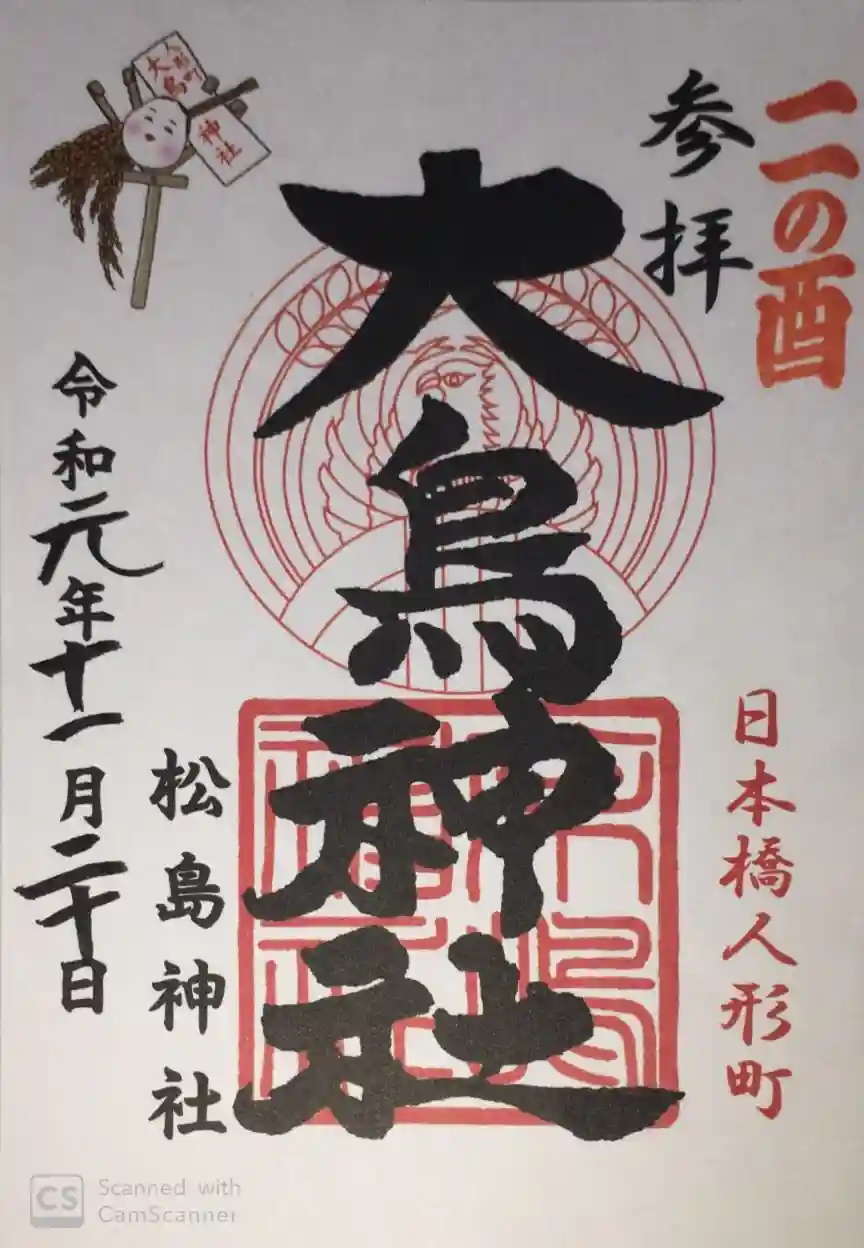 二の酉
参拝
大鳥神社
日本橋人形町
人形町
大鳥
神社
松島神社
令和元年十一月二十日
大鳥神社
CS Scanned with
CamScanner